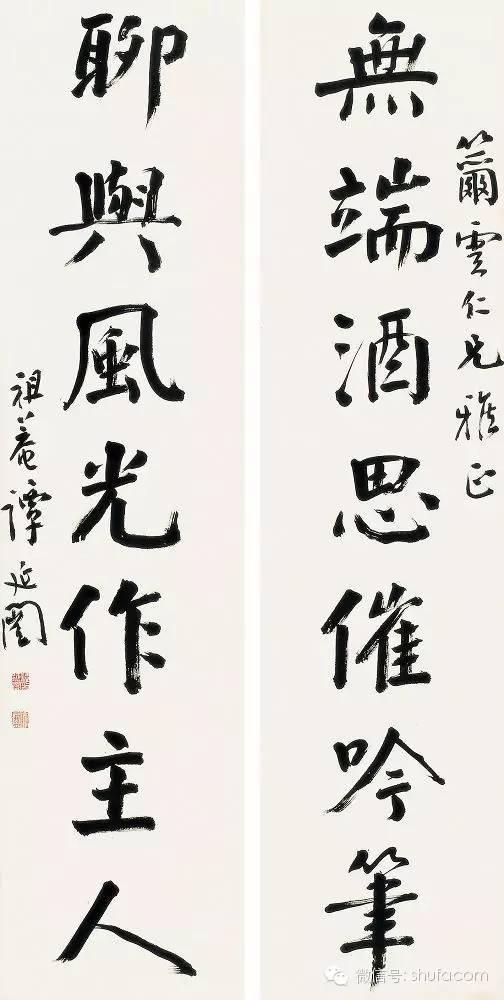 籋雲仁兄雅正
無端酒思催吟筆
聊與風光作主人
祖菴譚延闓
微信号: shufacom